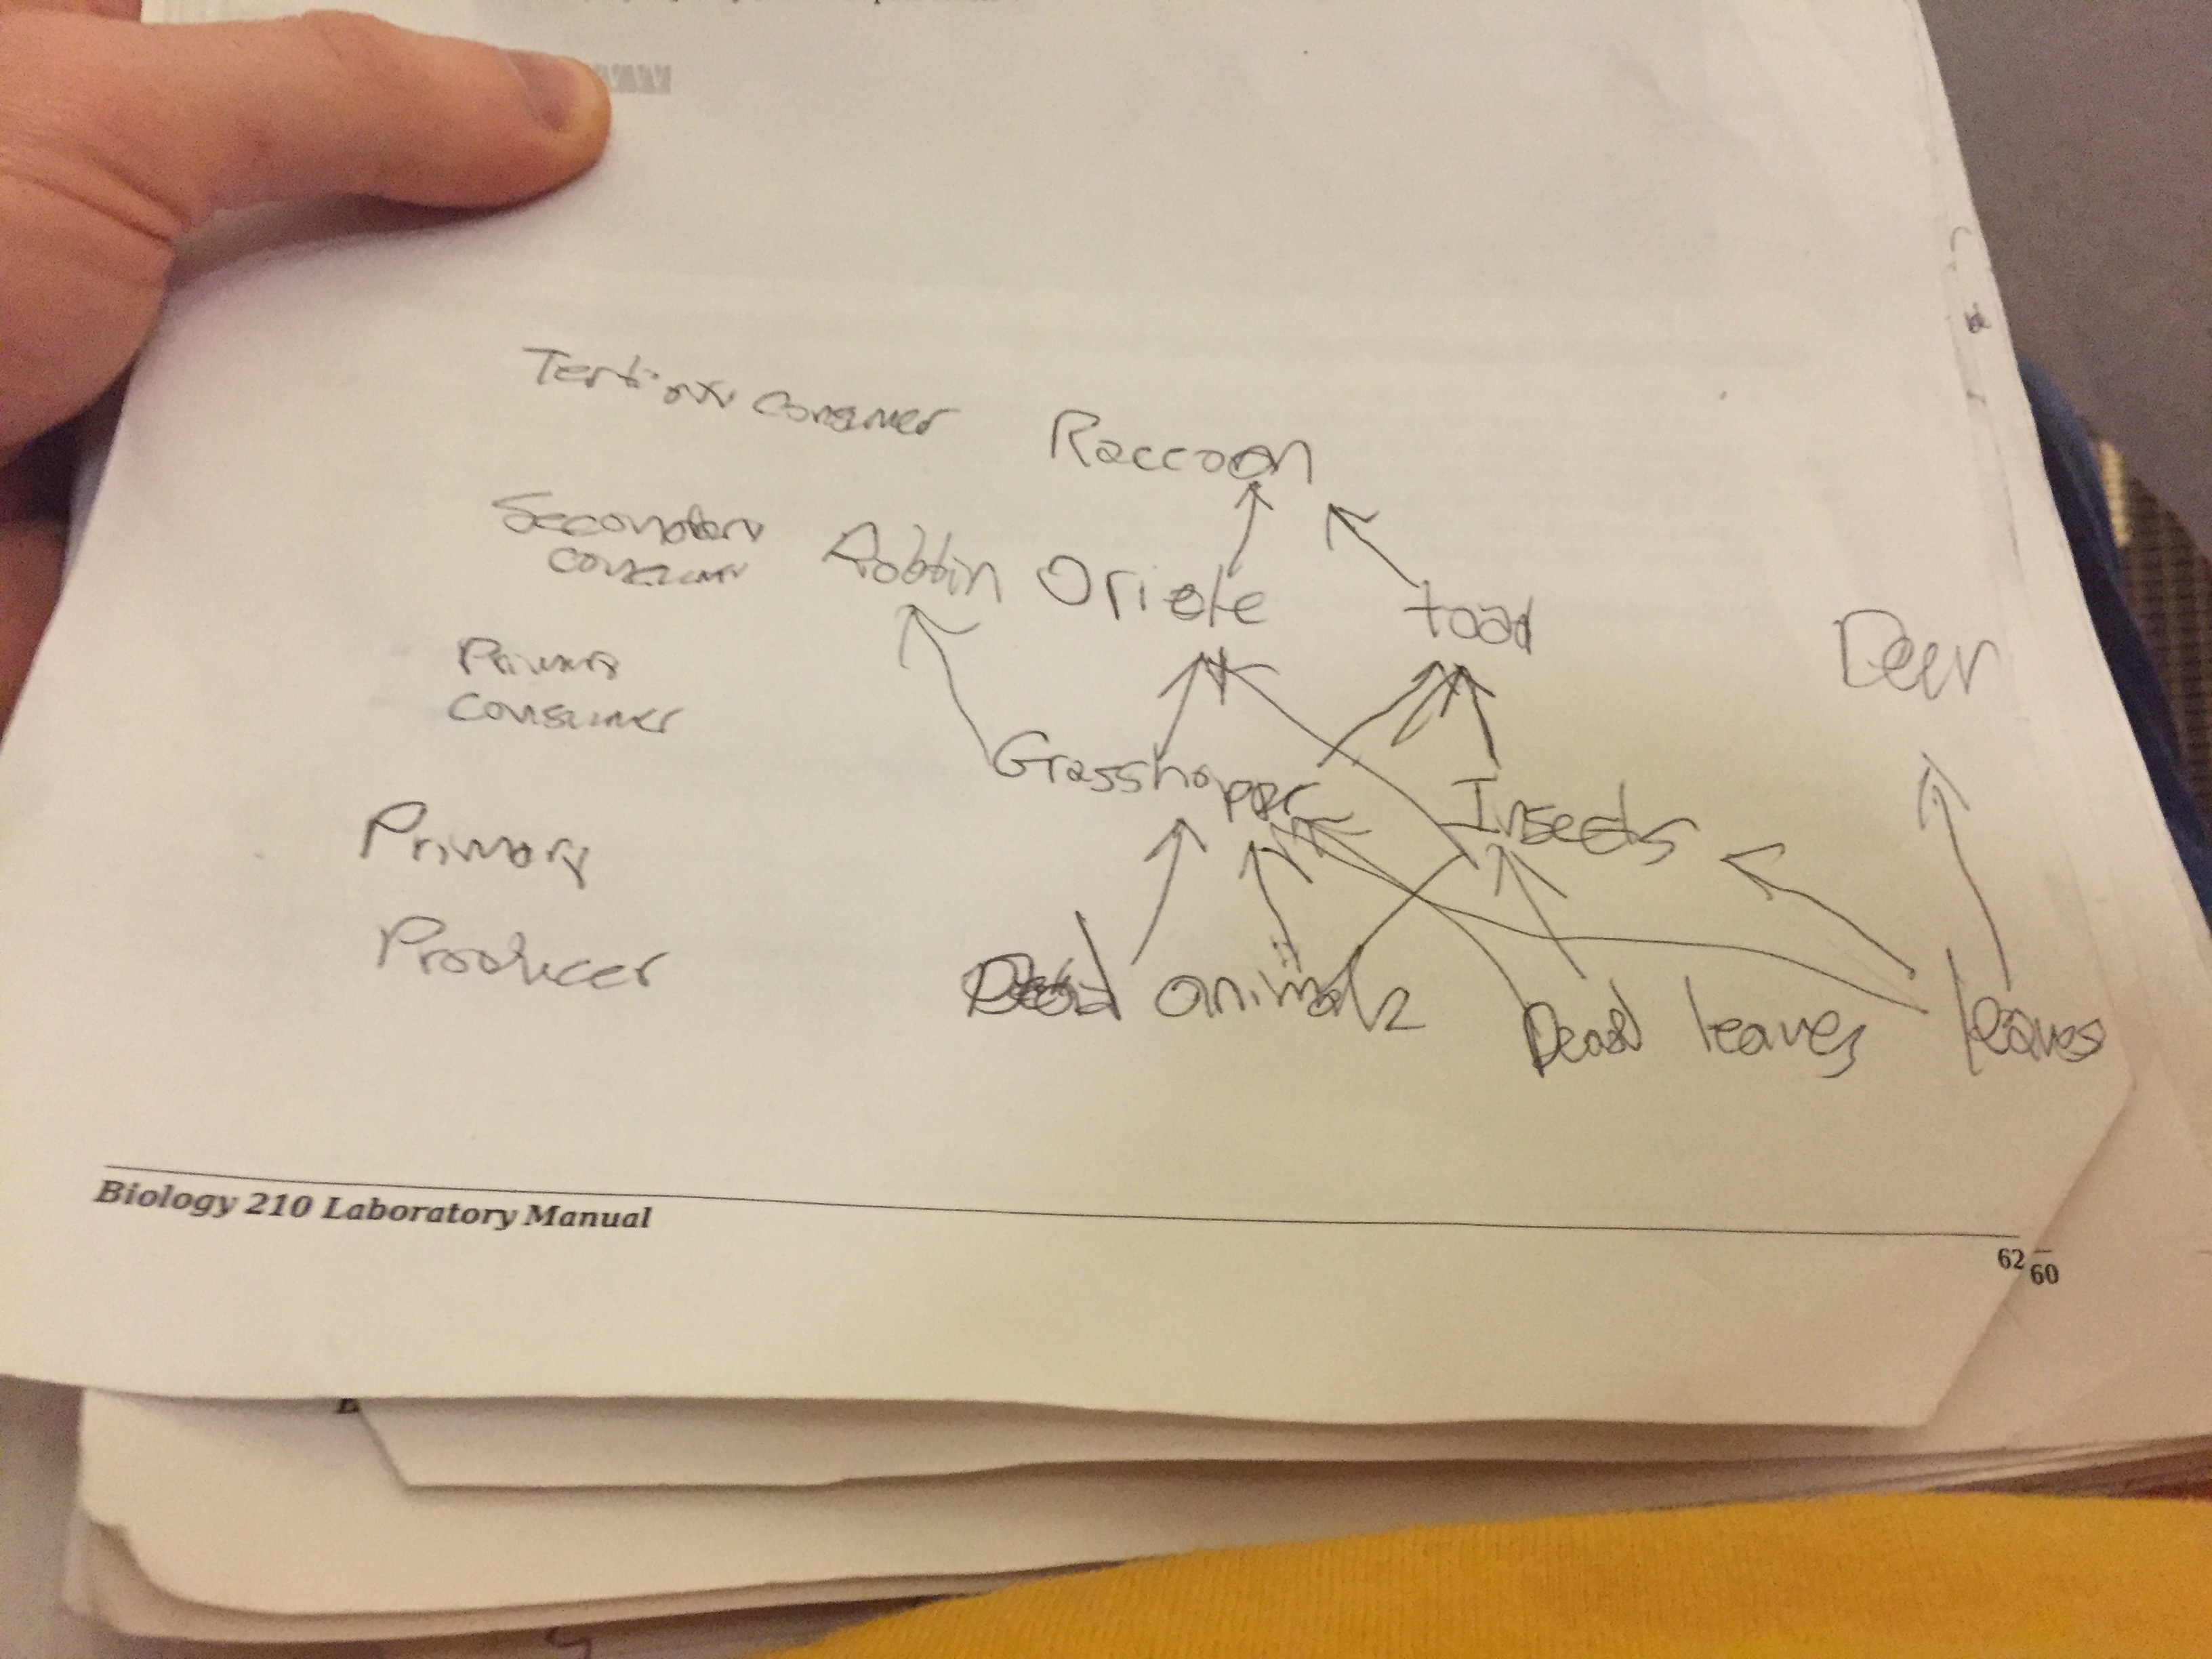 Tertiary consumer
Raccoon
Secondary
consumer
Robbin Oriole
toad
Deer
Primary
consumer
Grasshopper
Insects
Primary
Producer
Dead animals
Dead leaves
leaves
Biology 210 Laboratory Manual
62
60